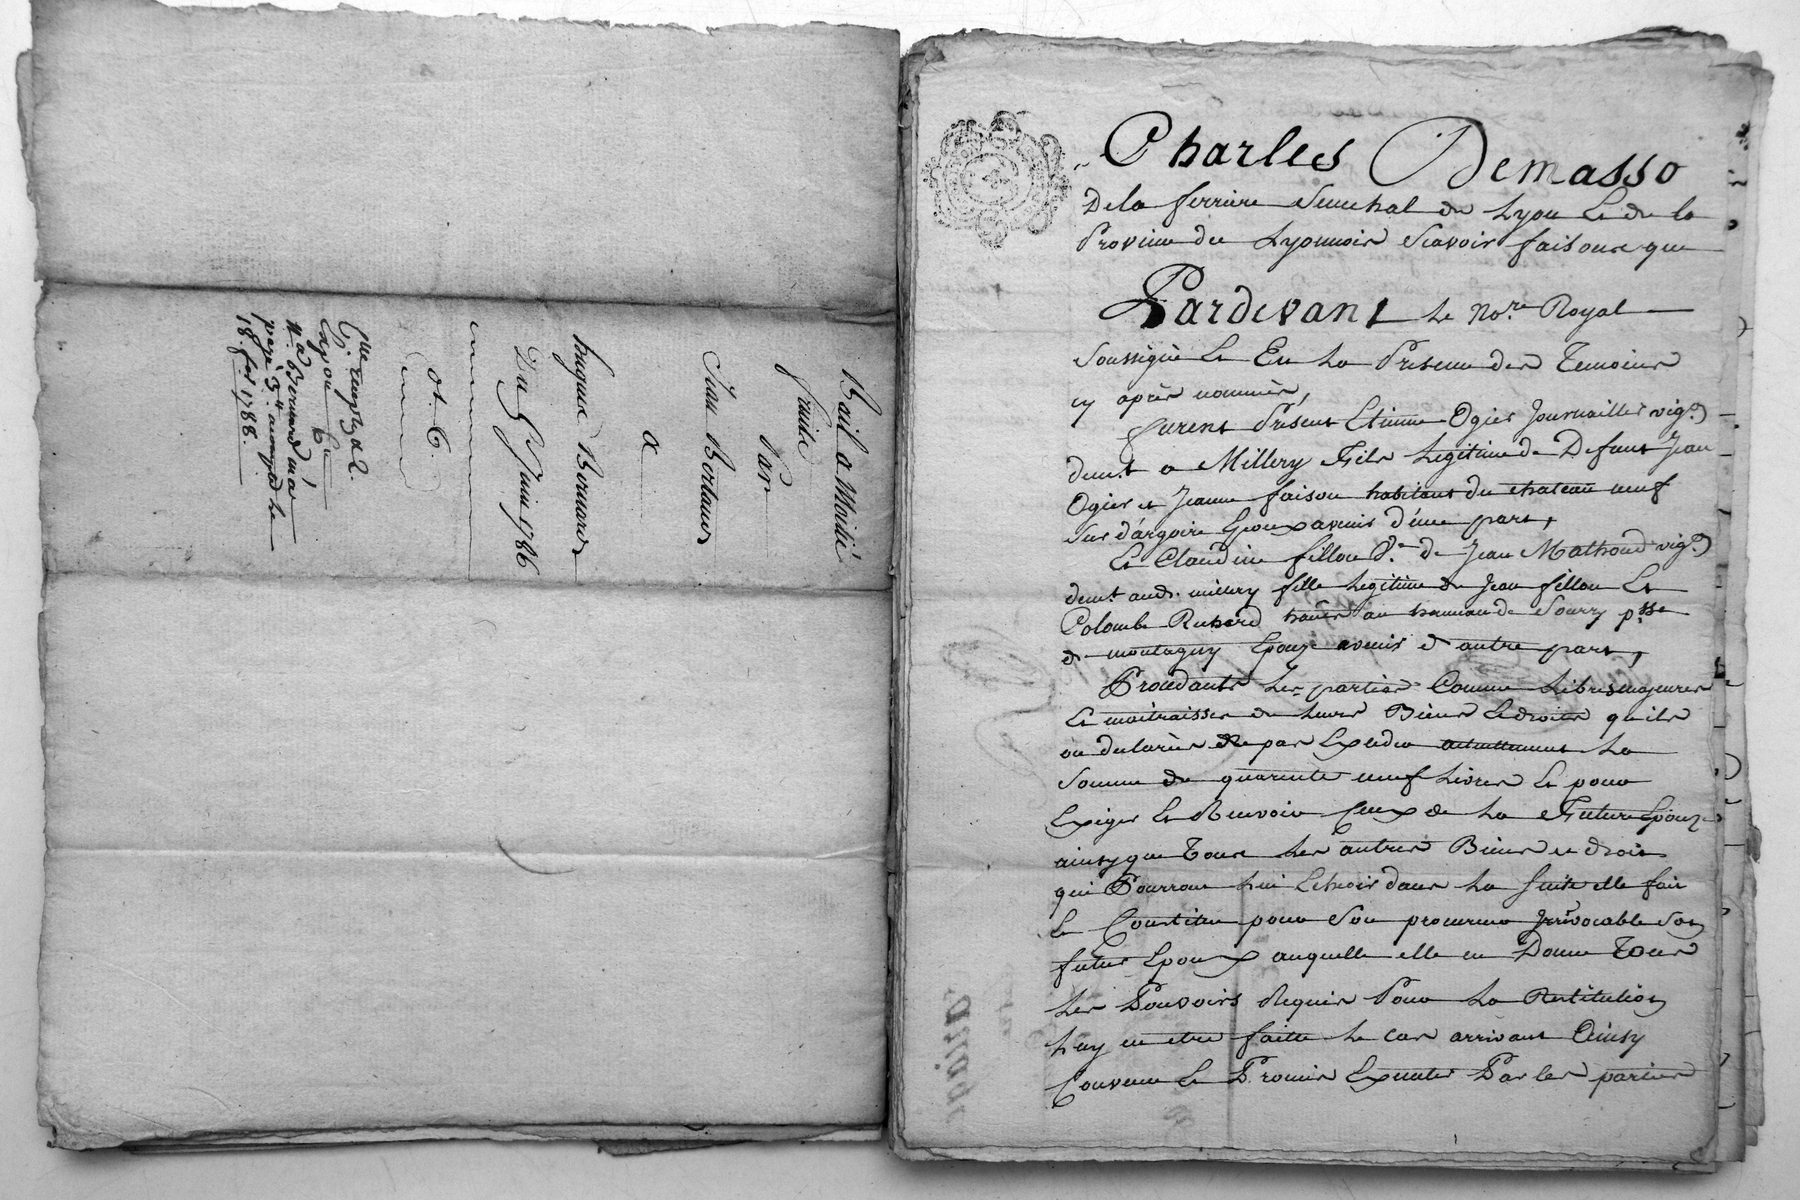 Bail a Moitié
fruits
Par
Jean Bertaud
a
hugues Bernard
Du 5 Juin 1786
ct. C.
page 34
18. fer 1788.
Charles Demasso
Dela ferriere Senechal de Lyon Et de la
Province du Lyonnois Scavoir faisons que
Pardevant Le No.re Royal
Soussigné Et En La Presence des Temoins
cy après nommés,
furent Présent Etienne Ogier Journaillier vig.
demt a Millery Fils Legitime de Defunt Jean
Ogier et Jeanne faison habitant du chateau neuf
Sur d'argoire Epoux avenir d'une part,
Et Claudine fillon V.e de Jean Mathoud vig.
demt aud. millery fille Legitime de Jean fillon Et
Colombe Richard au hameau de Sourzy p.sse
de montagny Epouze avenir d'autre part,
Procedants Les parties Comme Libres majeures
Et maitraisses de Leurs Biens Et droits qu'ils
on declarés par
Somme de quarente neuf Livres Et pour
Exiger Et Recevoir Ceux de La Future Epouze
ainsy que Tous Les autres Biens et droits
qui Pourront Lui Echeoir dans La Suite elle fait
Et Constitue pour Son procureur Irrévocable Son
futur Epoux auquelle elle en Donne Tous
Les Pouvoirs Requis Pour La Restitution
Luy en etre faitte Le Cas arrivant Ainsy
Convenu Et Promis Executer Par les parties